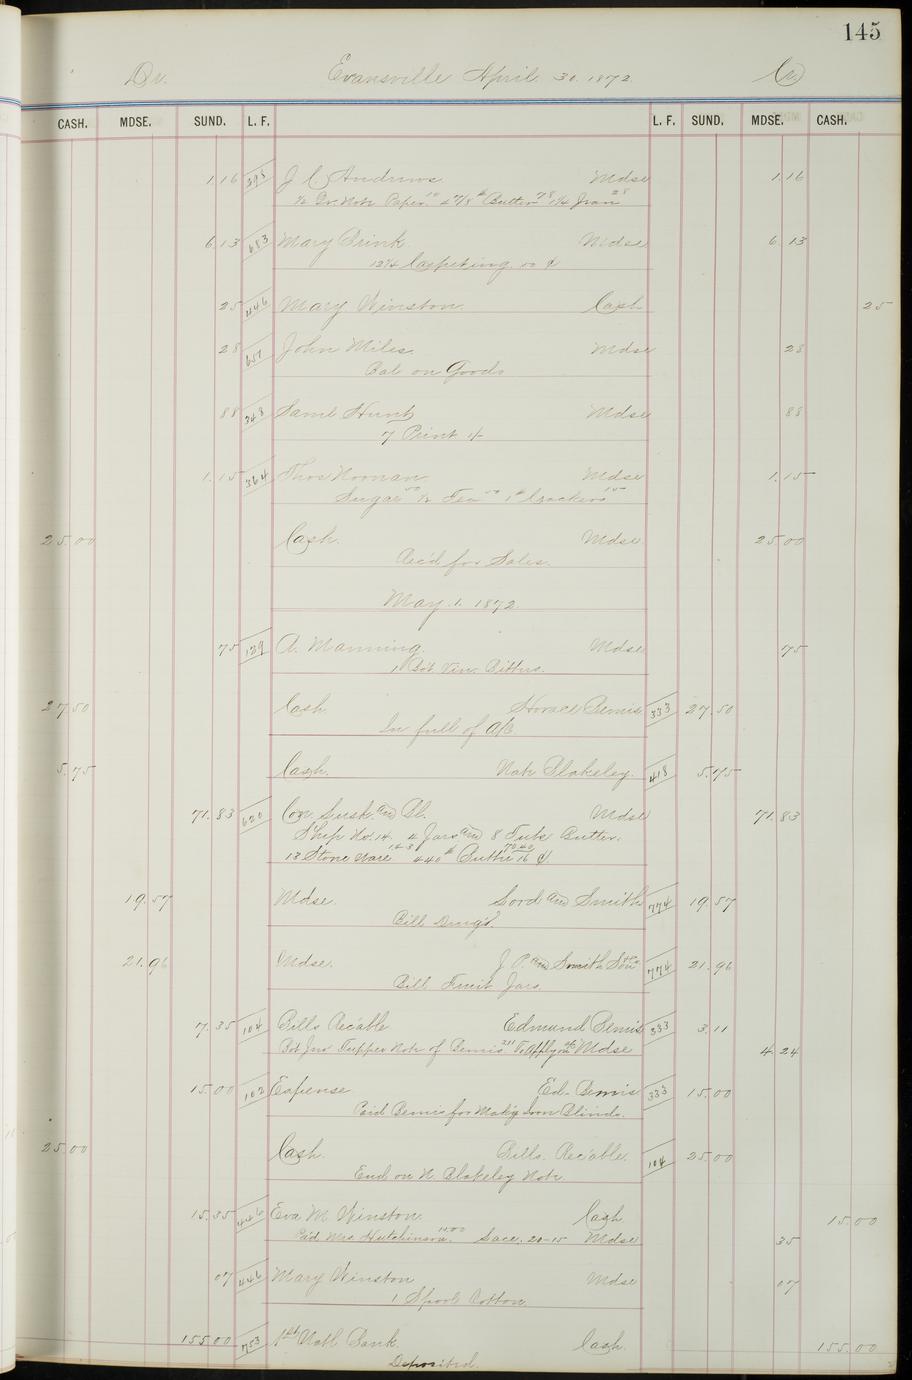 145
Dr. Evansville April 30. 1872. Cr
CASH. MDSE. SUND. L. F. L. F. SUND. MDSE. CASH.
1.16 393 J C Andrews Mdse 1.16
½ Qr. Note Paper 10 4 7/8 # Butter 78 1¾ Jean 28
6.13 683 Mary Brink Mdse 6.13
12¼ Carpeting 50 ¢
25 446 Mary Winston Cash 25
28 651 John Miles. Mdse 28
Bal on Goods
88 348 Saml Hunt Mdse 88
7 Print 1/-
1.15 364 Thos Noonan Mdse 1.15
Sugar 50 ½ Tea 50 1# Crackers 15
25.00 Cash. Mdse 25.00
Rec'd for Sales.
May. 1. 1872.
75 129 A. Manning. Mdse 75
1 Bot Vin. Bitters.
27.50 Cash Horace Bemis 333 27.50
In full of a/c
5.75 Cash. Nate Blakeley. 418 5.75
71.83 620 Con Susk. and Bl. Mdse 71.83
Ship No. 14. 4 Jars and 8 Tubs Butter.
13 Stone Ware 1.43 440 # Butter 70.40 16 ¢.
19.57 Mdse. Lord and Smith 774 19.57
Bill Drugs.
21.96 Mdse. J. P. and Smith Son 774 21.96
Bill Fruit Jars
7.35 104 Bills Rec'able Edmund Bemis 333 3.11
Bot Jno Tupper Note of Bemis. 311 To apply on a/c Mdse 4.24
15.00 102 Expense Ed. Bemis 333 15.00
Paid Bemis for Mak'g Iron Blinds.
25.00 Cash. Bills. Rec'able. 104 25.00
End on N. Blakeley Note
15.35 446 Eva M Winston. Cash 15.00
Paid Mrs Hutchinson. 15.00 Lace. 20-15 Mdse 35
07 446 Mary Winston Mdse 07
1 Spool Cotton
155.00 753 1st Natl Bank Cash. 155.00
Deposited.